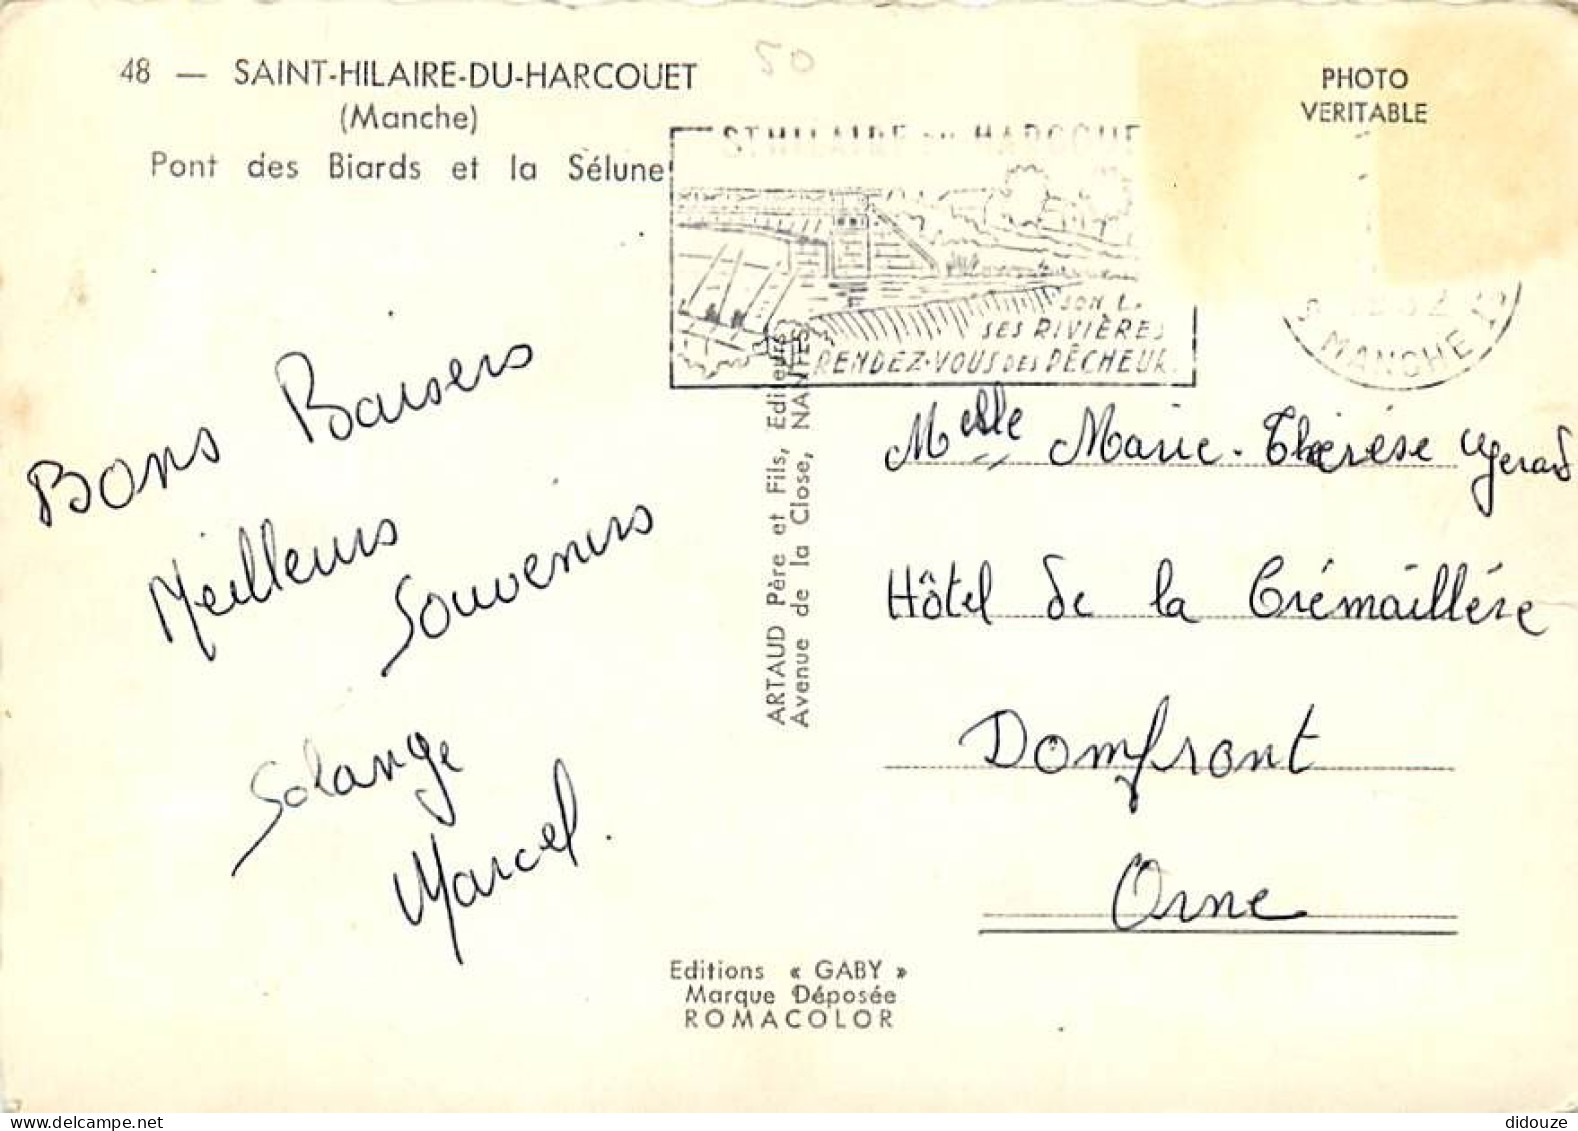 50
48 — SAINT-HILAIRE-DU-HARCOUET
(Manche)
Pont des Biards et la Sélune
PHOTO
VERITABLE
ST HILAIRE DU HARCOUE
SON L
SES RIVIÈRES
RENDEZ-VOUS DES PÊCHEUR
MANCHE
Bons Baisers
Meilleurs
Souvenirs
Solange
Marcel.
ARTAUD Père et Fils, Editeurs
Avenue de la Close, NANTES
Melle Marie-Thérèse
Hôtel de la Crémaillère
Domfront
Orne
Editions « GABY »
Marque Déposée
ROMACOLOR
didouze
www.delcampe.net